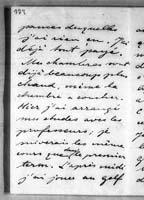 173
pences duquelle
j'ai rien eu. J'ai
déjà tout payé.
Mes chambres sont
déjà beaucoup plus
chaud, même la
chambre à coucher.
Hier j'ai arrangé
mes études avec les
professeurs; je
suiverais les même
cours que le premier
term. L'après midi
j'ai joué au golf